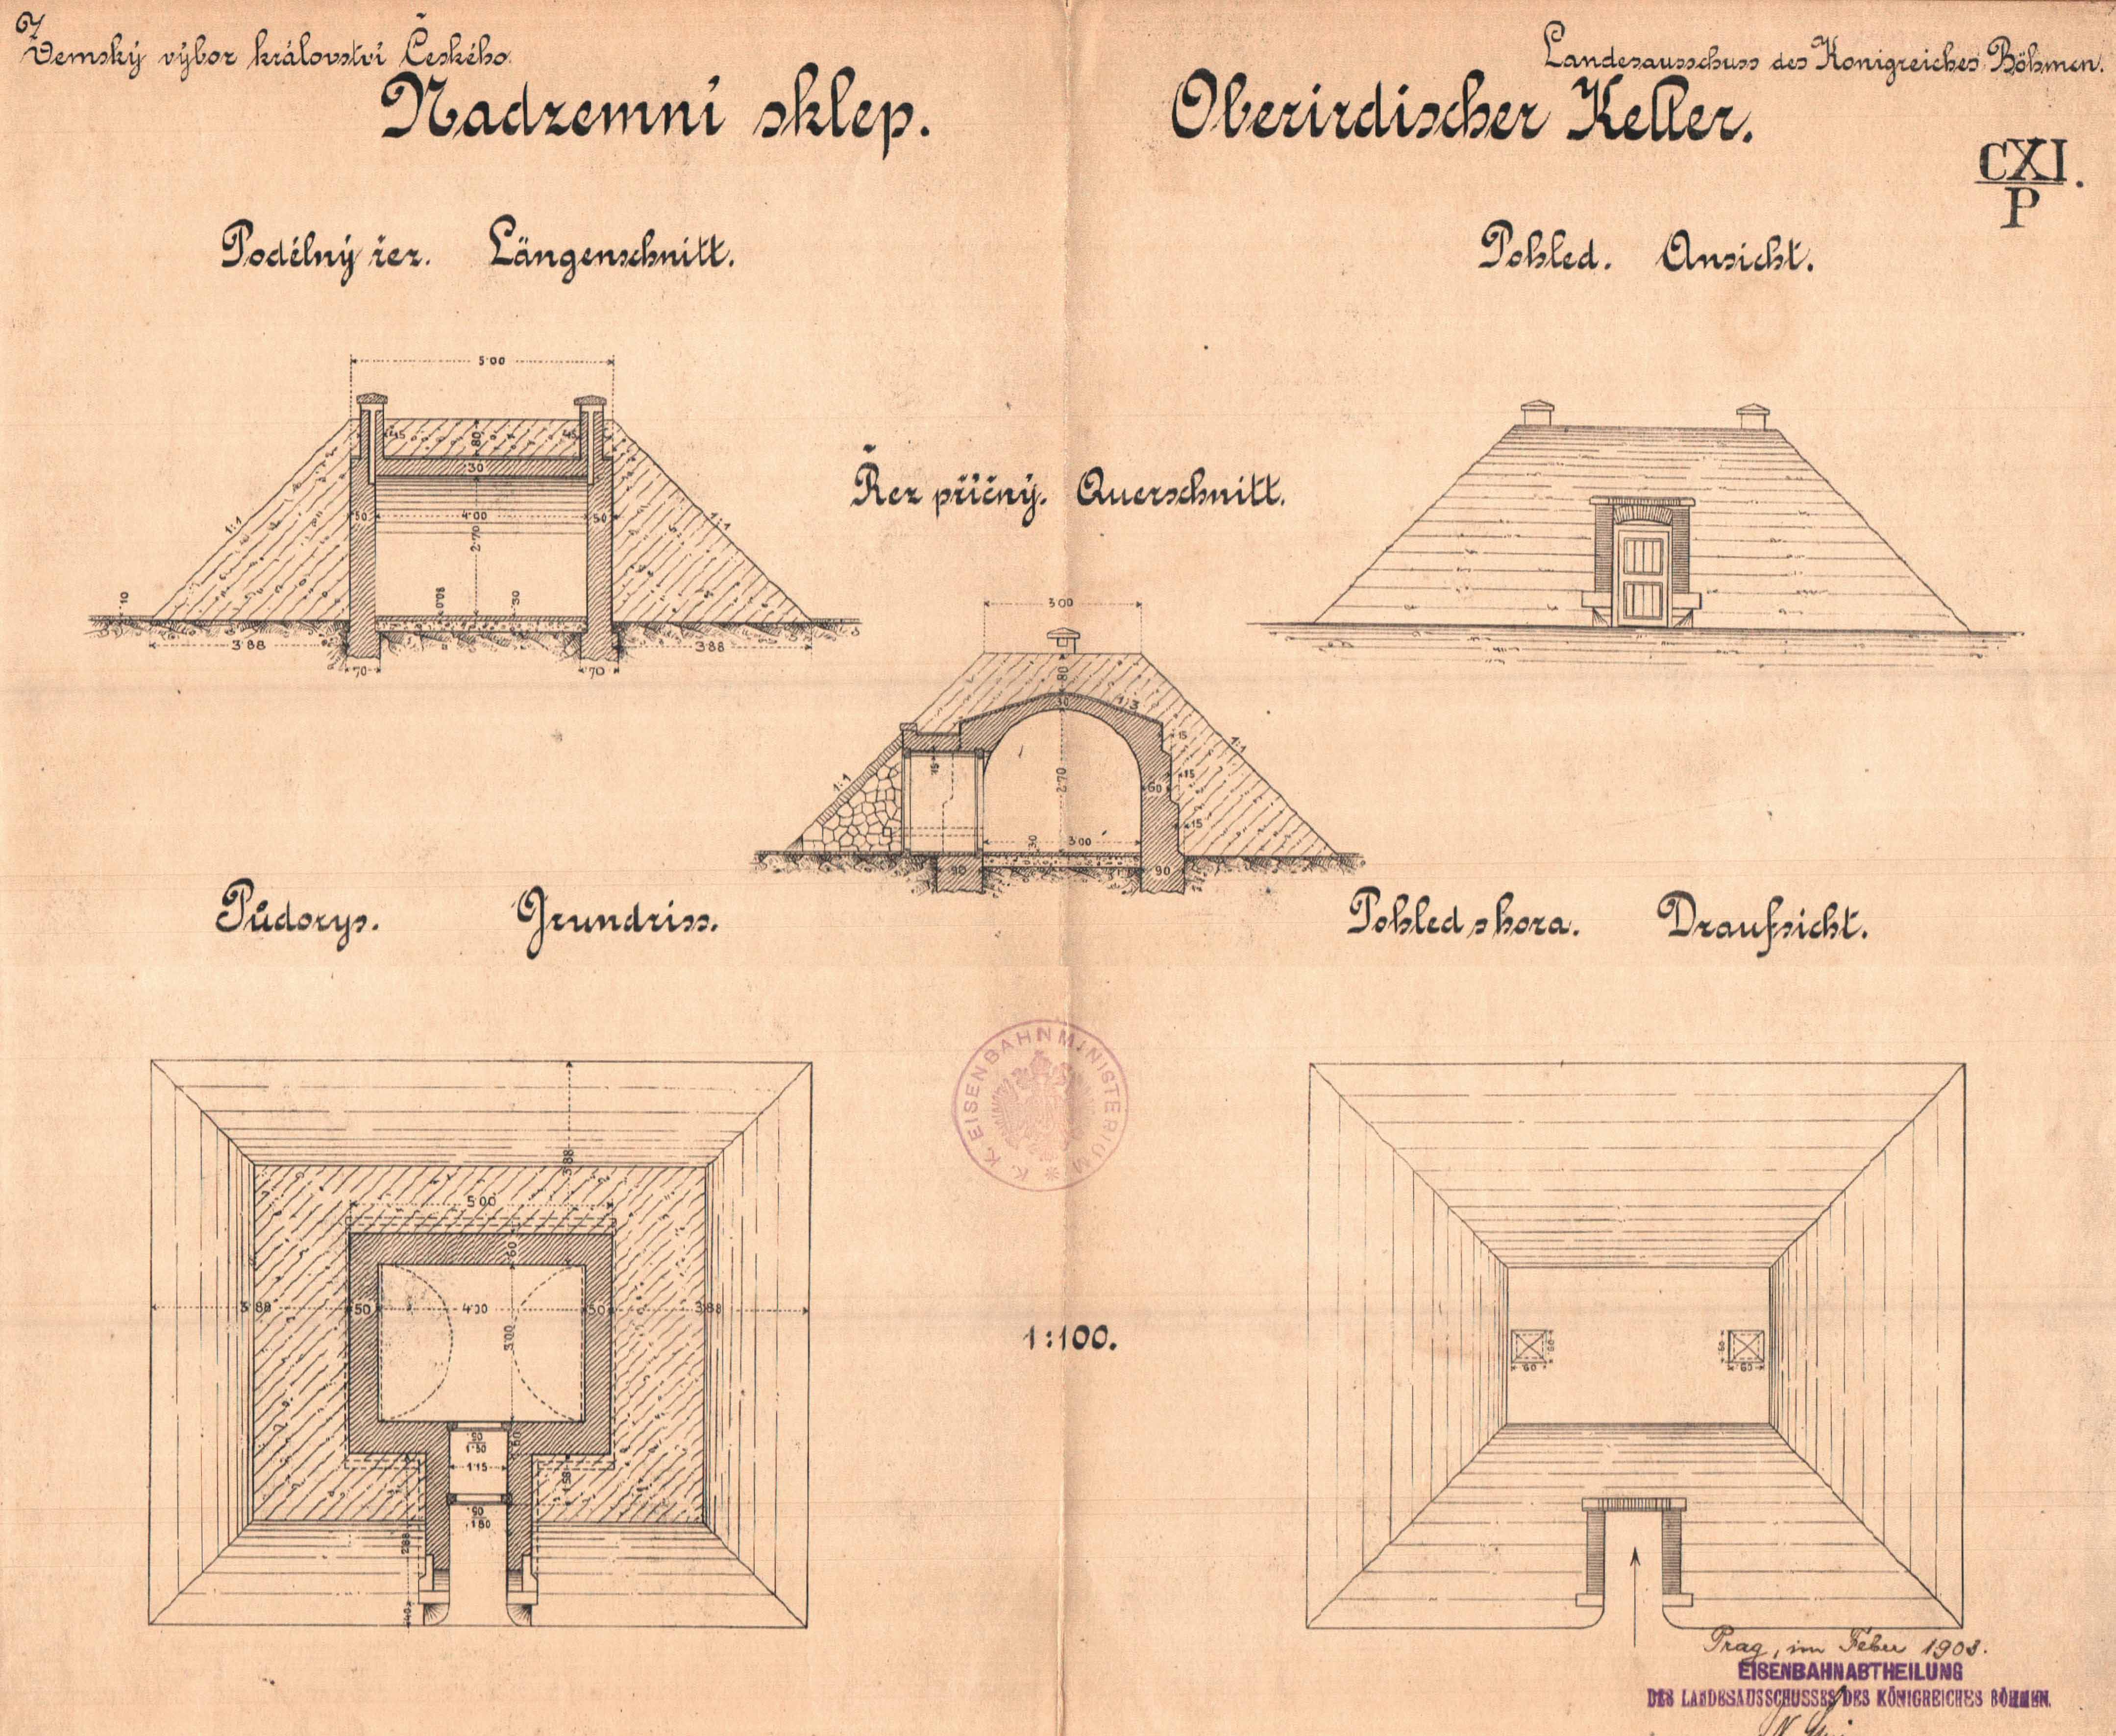 Zemský výbor království Českého.
Landesausschuss des Konigreiches Böhmen.
Nadzemní sklep.
Oberirdischer Keller.
CXI.
P
Podélný řez. Längenschnitt.
Pohled. Ansicht.
5·00
45
80
45
30
50
4·00
50
2·70
1:1
1:1
·10
0.08
·30
3·88
3·88
·70
·70
Řez příčný. Querschnitt.
3·00
80
30
1:3
15
1:1
1:1
15
2·70
60
15
15
30
3·00
90
90
Půdorys. Grundriss.
Pohled shora. Draufsicht.
3·88
5·00
60
3·88
50
4·00
50
3·88
3·00
90
1·50
60
1·15
1·58
90
1·80
2·88
40
K. K. EISENBAHNMINISTERIUM *
1:100.
60
60
60
60
Prag, im Feber 1903.
EISENBAHNABTHEILUNG
DES LANDESAUSSCHUSSES DES KÖNIGREICHES BÖHMEN.